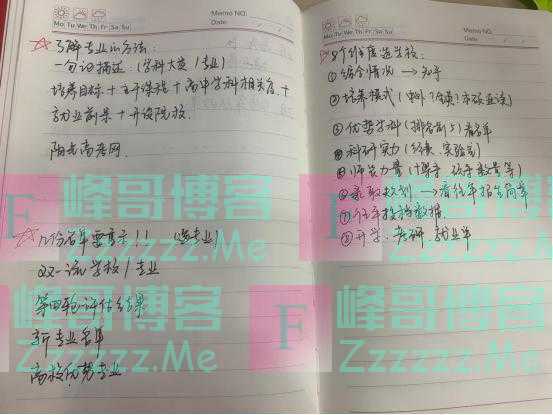 Memo NO.
Mo Tu We Th Fr Sa Su
Date
☆ 了解专业的方法:
一句话描述: (学科大类/专业)
培养目标 + 主干课程 + 高中学科相关度 +
就业前景 + 开设院校
阳光高考网
☆ 几份名单要看!! (选专业)
双一流学校/专业
第四轮评估结果
新专业名单
高校优势专业
Memo NO.
Mo Tu We Th Fr Sa Su
Date
☆ 8个维度选学校:
① 综合情况 →
② 培养模式
③ 优势学科 (排名前5) 看名单
④ 科研实力 (经费、实验室)
⑤ 师资力量
⑥ 录取规则 → 看往年招生简章
⑦ 往年投档数据
⑧ 升学: 考研 就业率
峰哥博客
Zzzzzz.Me
F
峰哥博客
Zzzzzz.Me
F
峰哥博客
Zzzzzz.Me
F
峰哥博客
Zzzzzz.Me